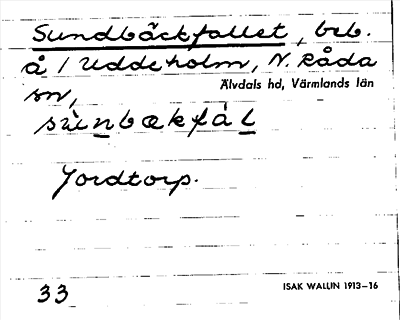 Sundbäckfallet, beb.
å / Uddeholm, N. Råda
sn, Älvdals hd, Värmlands län
sùnbækfàl
Jordtorp.
33 ISAK WALLIN 1913–16